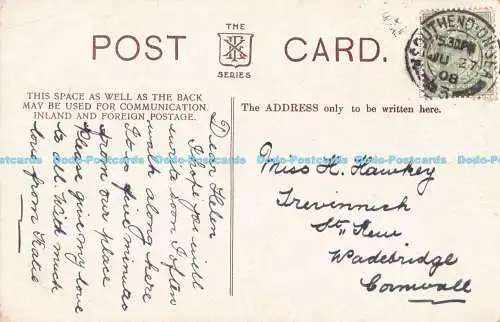 THE
POST CARD.
SERIES
THIS SPACE AS WELL AS THE BACK
MAY BE USED FOR COMMUNICATION.
INLAND AND FOREIGN POSTAGE.
The ADDRESS only to be written here.
SOUTHEND-ON-SEA
5.30PM
JU 27
08
Dear Helen
I hope you will
write soon I often
walk along here
It is five minutes
from our place
Please give my love
to all. With much
love from Katie
Miss H. Hawkey
Trevinnick
St. Kew
Wadebridge
Cornwall
Dodo-Postcards Dodo-Postcards Dodo-Postcards Dodo-Postcards Dodo-Postcards